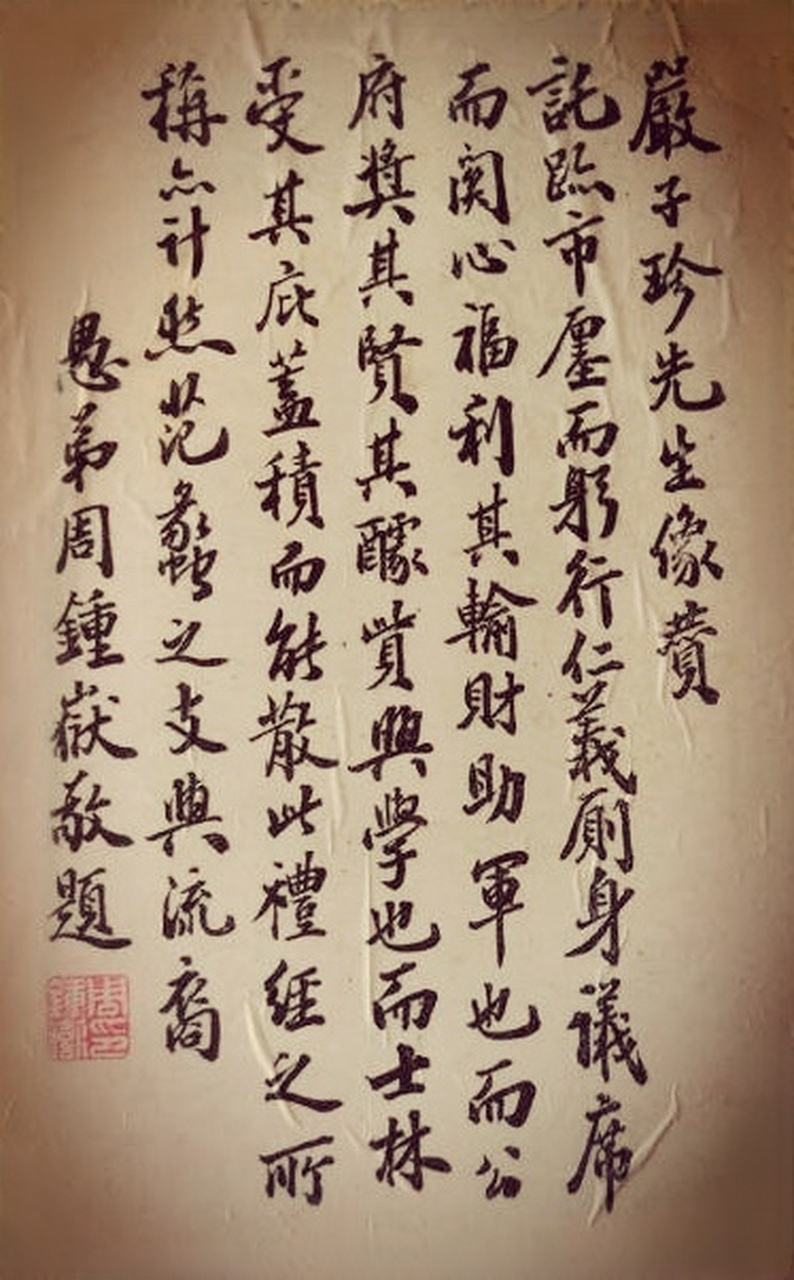 嚴子珍先生像贊
託跡市廛而躬行仁義廁身議席
而関心福利其輸財助軍也而公
府獎其賢其醵貲興學也而士林
受其庇蓋積而能散此禮經之所
稱亦計然范蠡之支與流裔
愚弟周鍾嶽敬題